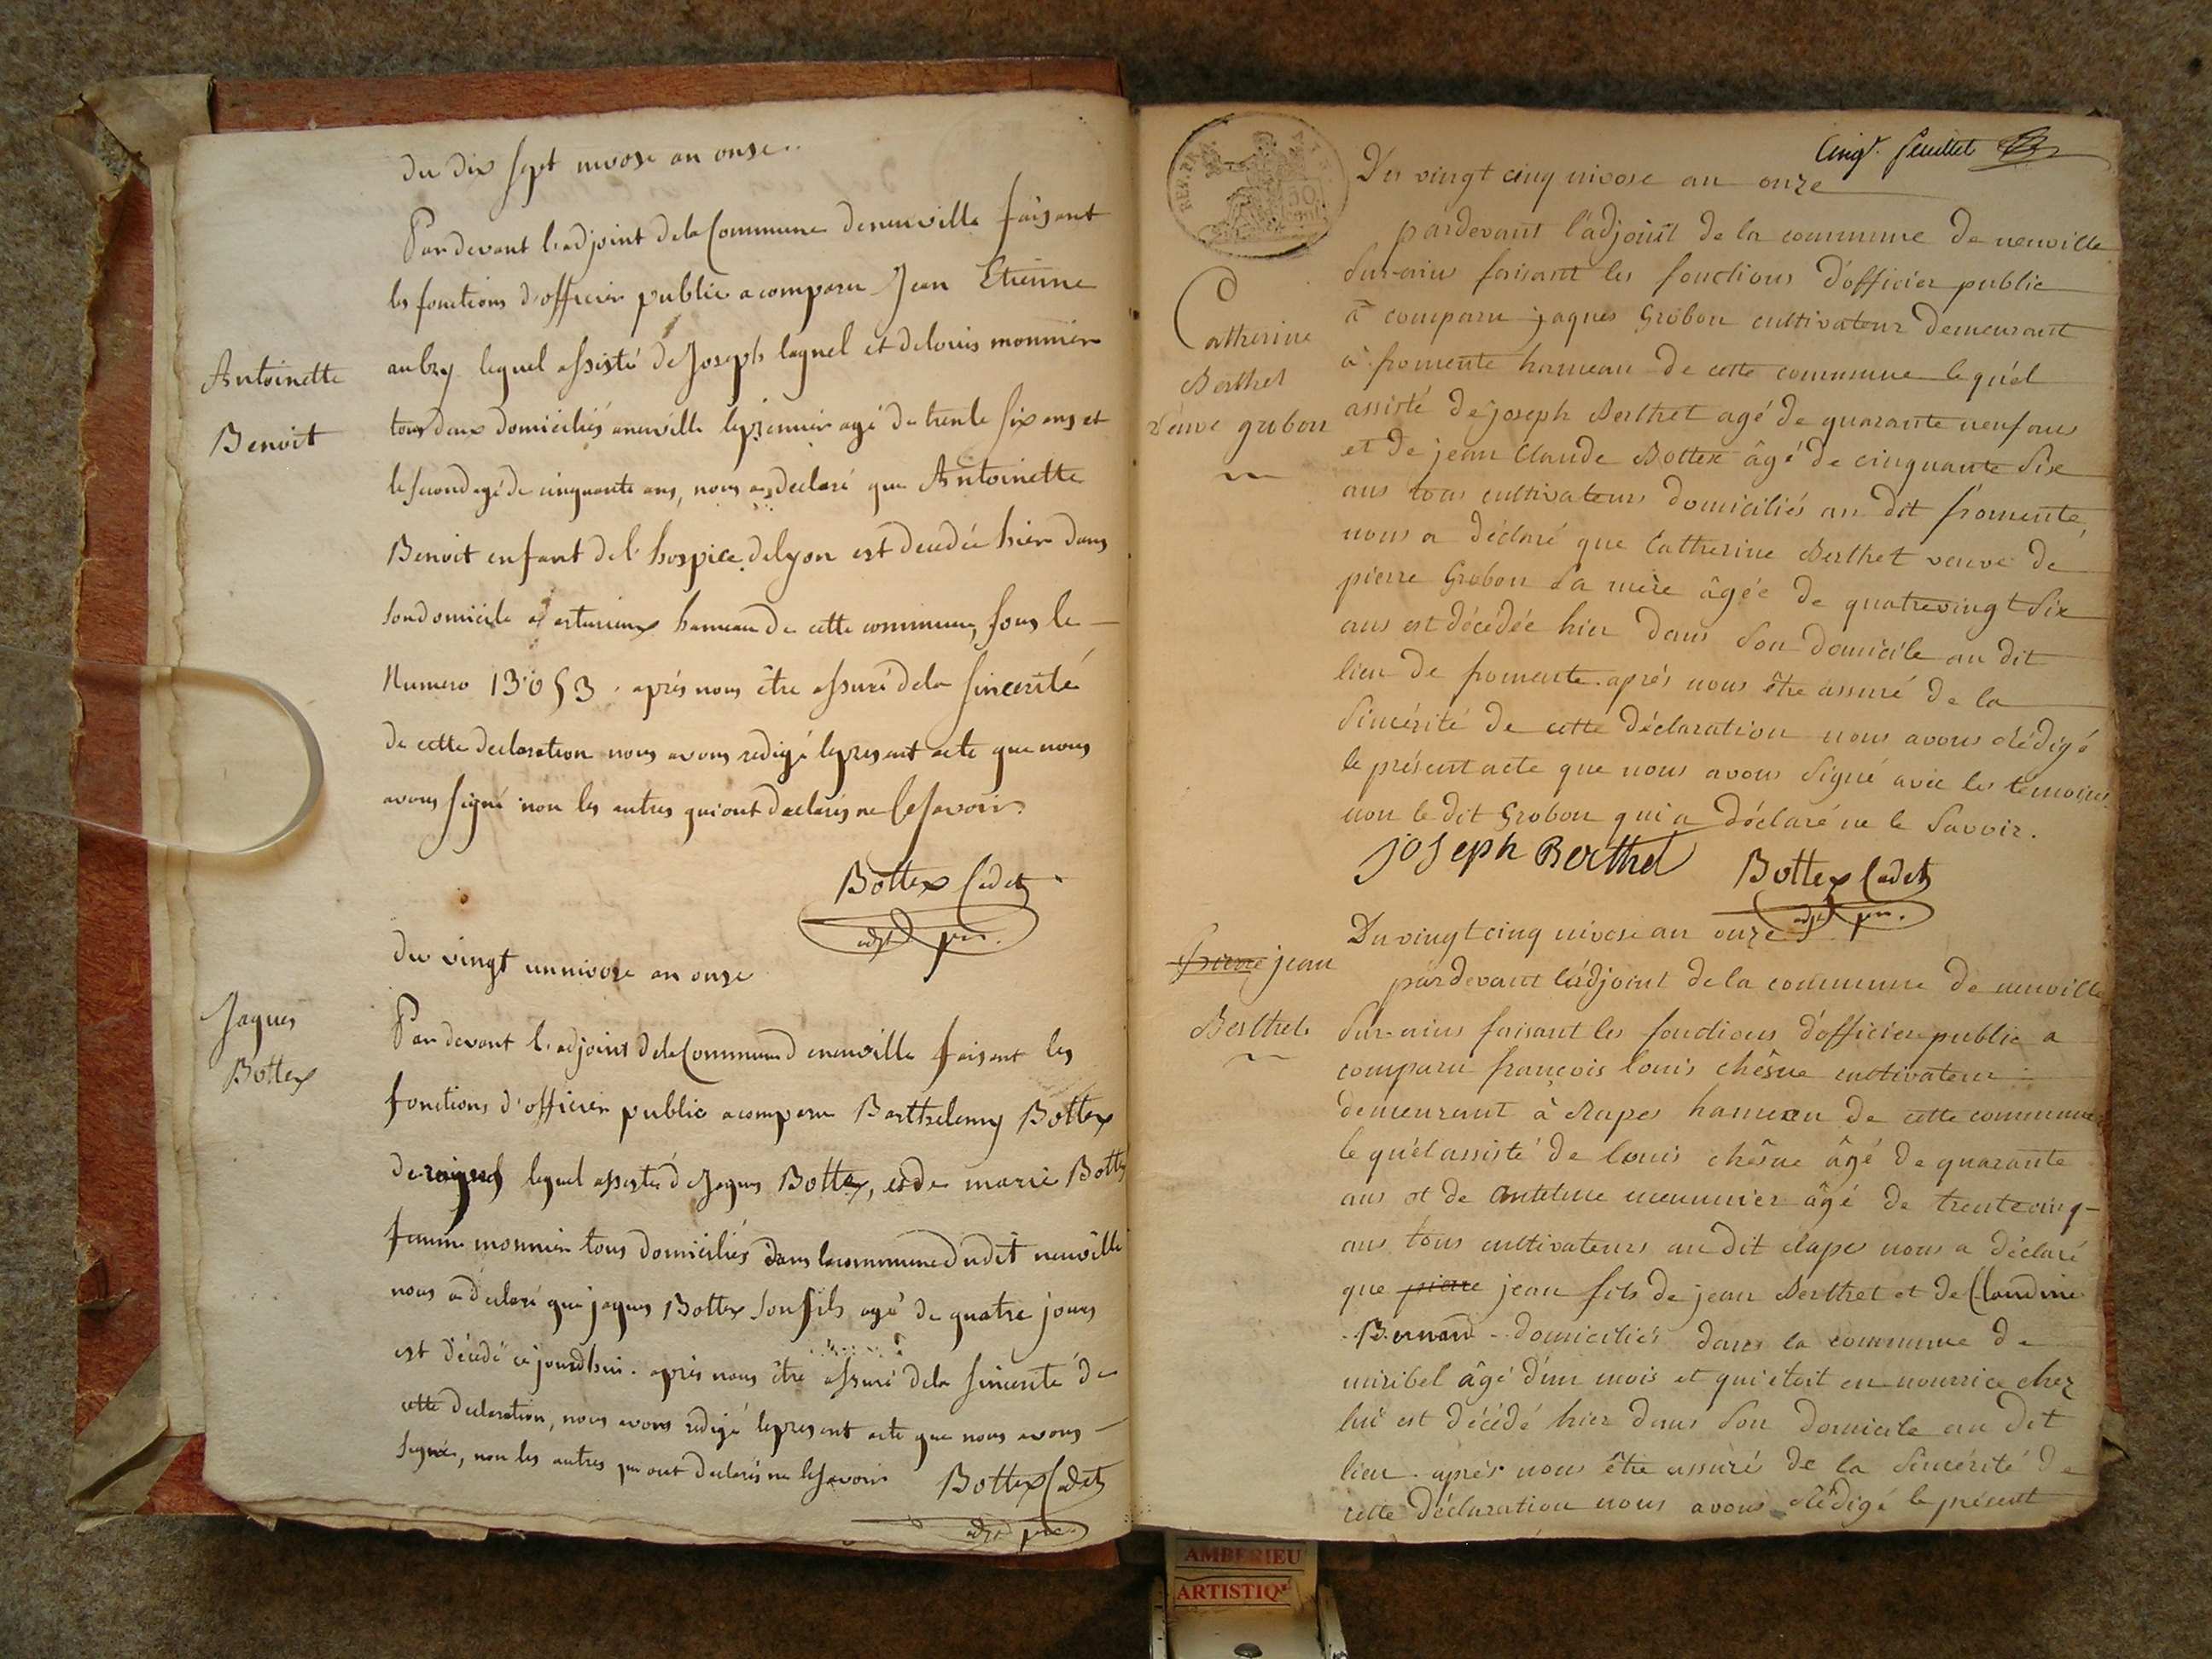 du dix sept nivose an onse..
Pardevant l'adjoint dela Commune deneuville faisant
les fonctions d'officier public a comparu Jean Etienne
aubry lequel assisté de Joseph lagnel et delouis monnier
Antoinette
Benoit
tous deux domiciliés aneuville lepremier agé de trente six ans et
le second agé de cinquante ans, nous a declaré que Antoinette
Benoit enfant del'hospice delyon est decedée hier dans
son domicile a hameau de cette commune, sous le
Numero 13053. aprés nous être assuré dela sincerité
de cette declaration nous avons redigé lepresent acte que nous
avons signé non les autres quiont declarés ne lesavoir.
Bottex Cadet
adjt
du vingt unnivose an onse
Jaques
Bottex
Pardevant l'adjoint dela Commune deneuville faisant les
fonctions d'officier public acomparu Barthelemy Bottex
de lequel assisté de Jaques Bottex, et de marie Bottex
femme monnier tous domiciliés dans lacommune dudit neuville
nous a declaré que jaques Bottex son fils agé de quatre jours
est décedé cejourdhui. aprés nous être assuré dela sincerité de
cette declaration, nous avons redigé lepresent acte que nous avons
signé, non les autres qui ont declarés ne lesavoir
Bottex Cadet
adjt
REP. FRA.
50
cinq.e feuillet
Du vingt cinq nivose an onze
pardevant l'adjoint de la commune de neuville
Sur-ain faisant les fonctions d'officier public
Catherine
Berthet
veuve grobon
à comparu jaques Grobon cultivateur demeurant
à fromente hameau de cette commune lequ'el
assisté de joseph Berthet agé de quarante neuf ans
et de jean Claude Bottex âgé de cinquante Six
ans tous cultivateurs domiciliés au dit fromente,
nous a déclaré que Catherine Berthet veuve de
pierre Grobon Sa mère âgée de quatrevingt Six
ans est décédée hier dans Son domicile au dit
lieu de fromente. aprés nous être assuré de la
Sincérité de cette déclaration nous avons Rédigé
le présent acte que nous avons Signé avec les temoins
non le dit Grobon qui a déclaré ne le Savoir.
joseph Berthet
Bottex Cadet
adjt
Du vingt cinq nivose an onze
pierre jean
Berthet
pardevant l'adjoint de la commune de neuville
Sur-ain faisant les fonctions d'officier public a
comparu françois louis chêsne cultivateur
demeurant à Rapes hameau de cette commune
le qu'el assisté de louis chêsne âgé de quarante
ans et de Antelme meunnier âgé de trente cinq
ans tous cultivateurs au dit Rapes nous a déclaré
que pierre jean fils de jean Berthet et de Claudine
Bernard domiciliés dans la commune de
miribel âgé d'un mois et qui étoit en nourrice chez
lui est décédé hier dans Son domicile au dit
lieu. aprés nous être assuré de la Sincérité de
cette déclaration nous avons Rédigé le présent
AMBERIEU
ARTISTIQ